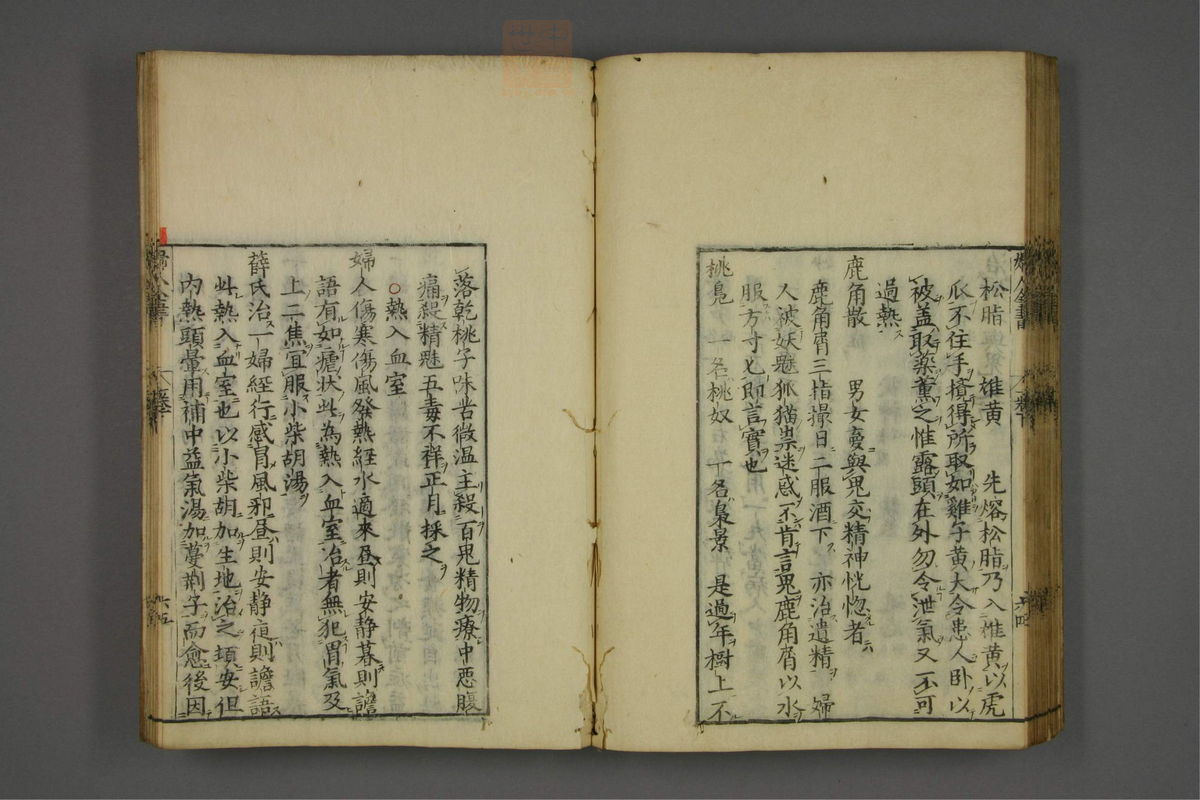 松脂 雄黄 先熔松脂乃入雄黄以虎
爪不住手擯得所取如雞子黄大令患人卧以
被盖取藥薫之惟露頭在外勿令泄氣又不可
過熱
鹿角散 男女夢與鬼交精神恍惚者
鹿角屑三指撮日二服酒下 亦治遺精 婦
人被妖魅狐猫祟迷惑不肯言鬼鹿角屑以水
服方寸匕即言實也
桃梟 一名桃奴 一名梟景 是過年樹上不
落乾桃子味苦微温主殺百鬼精物療中惡腹
痛殺精魅五毒不祥正月採之
○熱入血室
婦人傷寒傷風發熱經水適來昼則安静暮則譫
語有如瘧状此為熱入血室治者無犯胃氣及
上二焦宜服小柴胡湯
薛氏治一婦經行感冒風邪昼則安静夜則譫語
此熱入血室也以小柴胡加生地治之頓安但
内熱頭暈用補中益氣湯加蔓荊子而愈後因